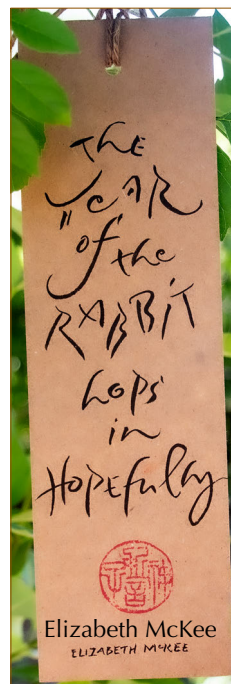 the
YEAR
of the
RABBIT
hops
in
Hopefully
Elizabeth McKee
ELIZABETH MCKEE